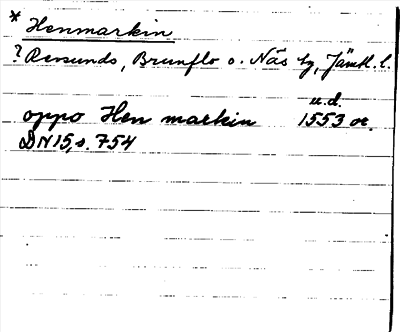 * Henmarkin
? Revsunds, Brunflo o. Näs tg, Jämtl. l.
u.d.
oppo Hen markin 1553 or.
DN 15, s. 754